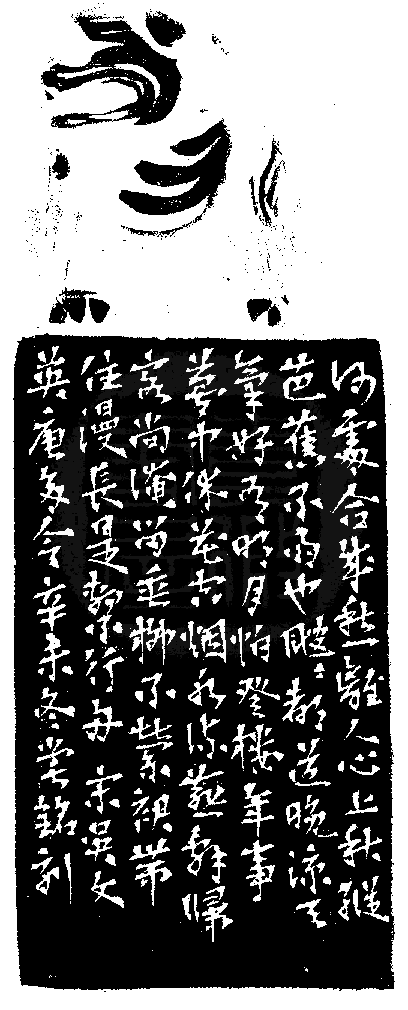 何處合成愁離人心上秋縱
芭蕉不雨也颼々都道晚涼天
氣好有明月怕登樓年事
夢中休花空烟水流燕辭歸
客尚淹留垂柳不縈裙帶
住漫長是繫行舟宋吳文
英唐多令辛未冬銘刻